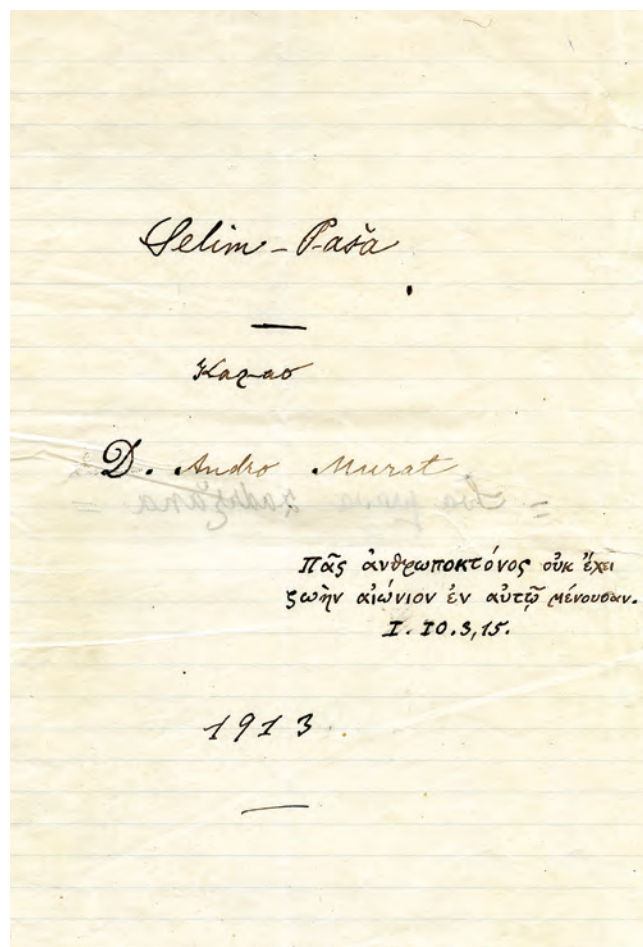 Selim-Paša
Kazao
D. Andro Murat
Πᾶς ἀνθρωποκτόνος οὐκ ἔχει
ζωὴν αἰώνιον ἐν αὐτῷ μένουσαν.
I. IO. 3, 15.
1913.